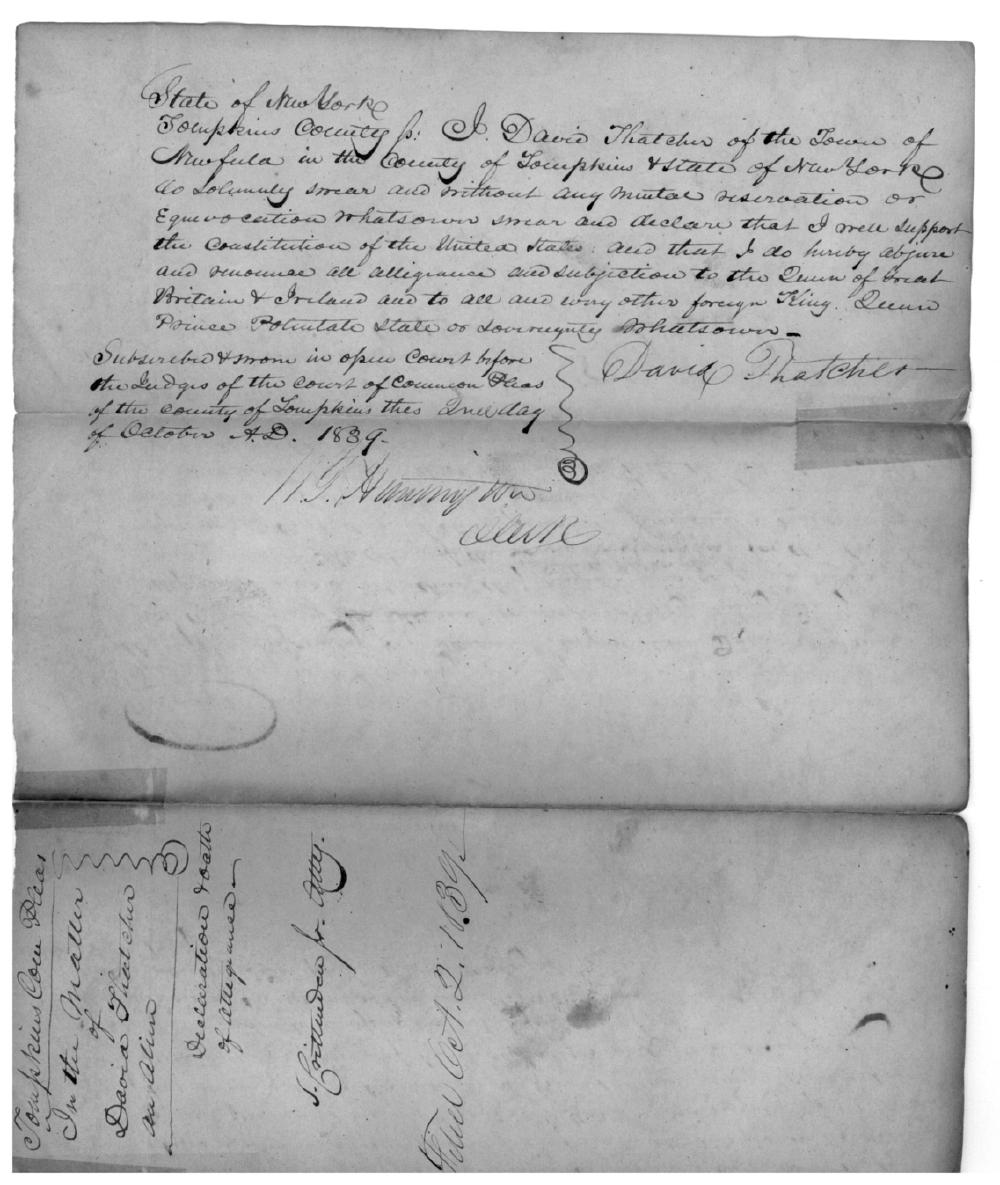 State of New York
Tompkins County ss: I. David Thatcher of the Town of
Newfield in the County of Tompkins & State of New York
do Solemnly swear and without any mental reservation or
Equivocation whatsoever swear and declare that I will support
the Constitution of the United States: and that I do hereby abjure
and renounce all allegiance and subjection to the Queen of Great
Britain & Ireland and to all and every other foreign King. Queen
Prince Potentate State or Sovereignty Whatsoever
Subscribed & sworn in open Court before
the Judges of the Court of Common Pleas
of the County of Tompkins this 2nd day
of October A.D. 1839.
David Thatcher
Clerk
Tompkins Com Pleas
In the Matter
of
David Thatcher
an Alien
Declaration & oath
of allegiance
S. Crittenden Jr. Atty.
Filed Oct. 2. 1839